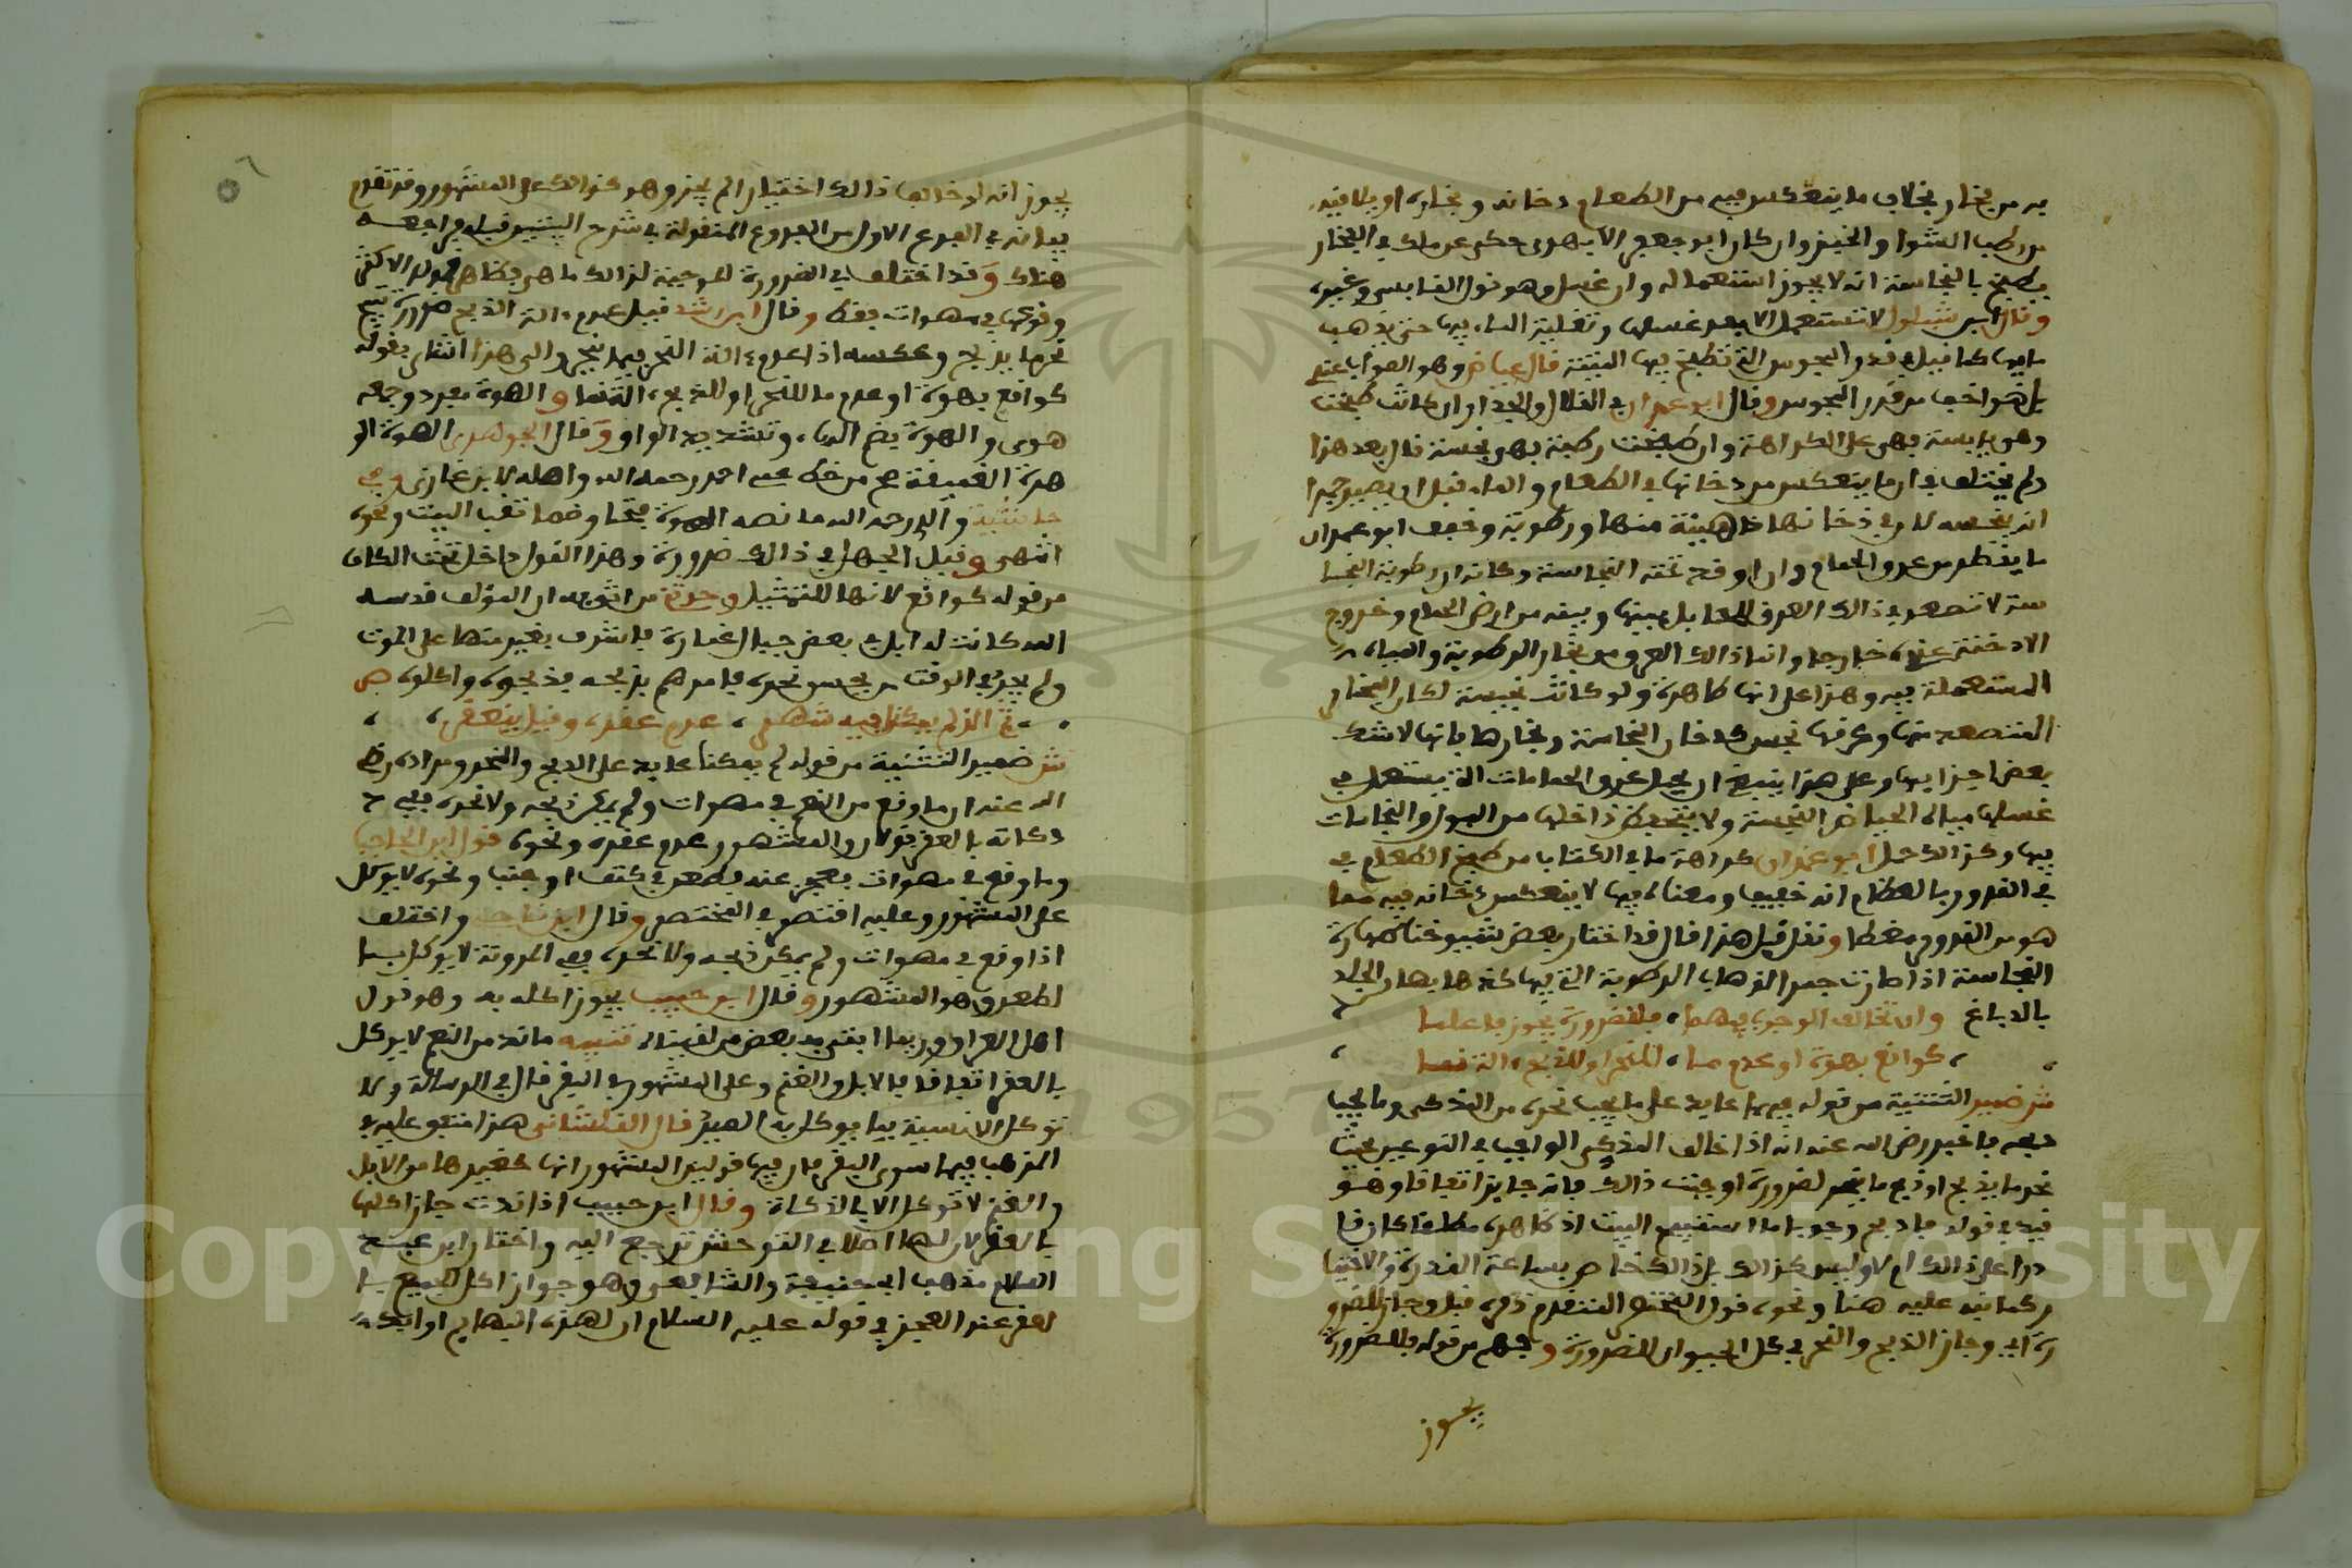 به من بخار بخلاف ما ينعكس فيه من الطعام دخانه وبخاره او يلاقيه
من رطب الشوا والخبز وان كان ابو جعفر الابهرى حكى عن ملك في الفخار
يطبخ بالنجاسة انه لا يجوز استعماله وان غسل وهو قول القابسي وغيره
وقال ابن شبلون لا تستعمل الا بعد غسلها وتغلية الماء فيها حتى يذهب
ما فيها كما قيل في قدور المجوس التي تطبخ فيها الميتة قال عياض وهو الصواب عندي
بل هو اخف من قدر المجوس وقال ابو عمران في القلال والجرار ان كانت طبخت
وهي يابسة فهي على الكراهة وان طبخت رطبة فهي نجسة قال بعد هذا
ولم يختلف في ان ما ينعكس من دخانها في الطعام والماء قبل ان يصير جمرا
انه ينجسه لان في دخانها ذا هبئة منها ورطوبة وخفف ابو عمران
ما يقطر من عرق الحمام وان اوقد تحته النجاسة وكانه ان رطوبة النجا
سة لا تصعد في ذالك العرق للحائل بينها وبينه من ارض الحمام وخروج
الادخنة عنه خارجا وانما ذالك العرق من بخار الرطوبة والمياه
المستعملة فيه وهذا على انها طاهرة ولو كانت نجسة لكان البخار
المتصعد منها وعرقها نجس كدخان النجاسة وبخارها بانها لا شك
بعض اجزايها وعلى هذا ينبغي ان يحمل عرق الحمامات التي يستعمل في
غسلها مياه الحياض النجسة ولا يتحفظ داخلها من البول والنجاسات
فيها وكذالك حمل ابو عمران كراهة ما في الكتاب من طبخ الطعام في
في القدور بالعظام انه خفيف ومعناه فيها لا ينعكس دخانه فيه مما
هو من القدور مغطا ونقل قبل هذا قال قد اختار بعض شيوخنا طهارة
النجاسة اذا صارت جمرا لذهاب الرطوبة التي فيها كذهابها من الجلد
بالدباغ وان تخالف الوجوب فيهما، فلضرورة يجوز فاعلما
، كواقع بهوة او عدم ما، للنحر او للذبح، التقما ،
ش ضمير التثنية من قوله فيهما عايد على ما يجب نحره من المذكى وما يجب
ذبحه فاخبر رضي الله عنه انه اذا خالف المذكي الواجب في النوعين بحيث
نحر ما يذبح او ذبح ما ينحر لضرورة اوجبت ذالك فانه جايز اتفاقا وهو
قيد في قوله فاذبح وجوبا ما استفيد البيت اذ ظاهره مطلقا كان قا
درا على ذالك ام لا وليس كذالك بل ذالك خاص بساعة القدرة والاختيا
ر كما نبه عليه هنا ونحوه قول المختصر المتقدم ذكره قبل وجاز للضرو
رة اي وجاز الذبح والنحر في كل الحيوان للضرورة وفهم من قوله فللضرورة
يجوز
يجوز انه لو خالف ذالك اختيارا لم يجز وهو كذالك على المشهور وقد تقدم
بيانه في الفرع الاول من الفروع المنقولة في شرح البيتين قبله فراجعه
هناك وقد اختلف في الضرورة الموجبة لذالك ما هي فظاهر قوله الاكتفى
وقوعها في مهوات فقط وقال ابن رشد قيل عدم ءالة الذبح ضرورة تبيح
نحر ما يذبح وعكسه اذا عدم ءالة النحر فيما ينحر والى هذا اشار بقوله
كواقع بهوة او عدم ما للنحر او للذبح، التقما والهوة مفرد وجمعه
هوى والهوة بضم الهاء وتشديد الواو وقال الجوهرى الهوة الو
هدة العميقة صح من خط عمه احمد رحمه الله واصله لابن غازي وفي
حاشية والده رحمه الله ما نصه الهوة فتحا وضما ثقب البيت ونحوه
انتهى وقيل الجهل في ذالك ضرورة وهذا القول داخل تحت الكاف
من قوله كواقع لانها للتمثيل وحدثنا من اثق به ان المؤلف قدسه
الله كانت له ابل في بعض جبال غمارة فاشرف بعير منها على الموت
ولم يجد في الوقت من يحسن نحره فامرهم بذبحه فذبحوه واكلوه ص
، ثم الذي لم يمكنا فيه شهر، عدم عقره، وقيل ينعقر، ،
ش ضمير التثنية من قوله لم يمكنا عايد على الذبح والنحر ومراده رضي
الله عنه ان ما وقع من النعم في مهوات ولم يمكن ذبحه ولا نحره ففي
ذكاته بالعقر قولان والمشهور عدم عقره ونحوه قول ابن الحاجب
وما وقع في مهوات فعجز عنه فطعن في كتف او جنب ونحوه لا يوكل
على المشهور وعليه اقتصر في المختصر وقال ابن ناجي واختلف
اذا وقع في مهوات ولم يمكن ذبحه ولا نحره ففي المدونة لا يوكل بما
لطعن وهو المشهور وقال ابن حبيب يجوز اكله به وهو قول
اهل العراق وربما افتى به بعض من لقيناه تنبيه ما ند من النعم لا يوكل
بالعقر اتفاقا في الابل والغنم وعلى المشهور في البقر قال في الرسالة ولا
توكل الانسية بما يوكل به الصيد قال القلشانى هذا متفق عليه في
المذهب فيما سوى البقر فان فيها قولين المشهور انها كغيرها من الابل
والغنم لا توكل الا بالذكاة وقال ابن حبيب اذا ندت جاز اكلها
بالعقر لان لها اصلا في التوحش ترجع اليه واختار ابن عبد
السلام مذهب ابي حنيفة والشافعي وهو جواز اكل الجميع با
لعقر عند العجز في قوله عليه السلام ان لهذه البهايم اوابد